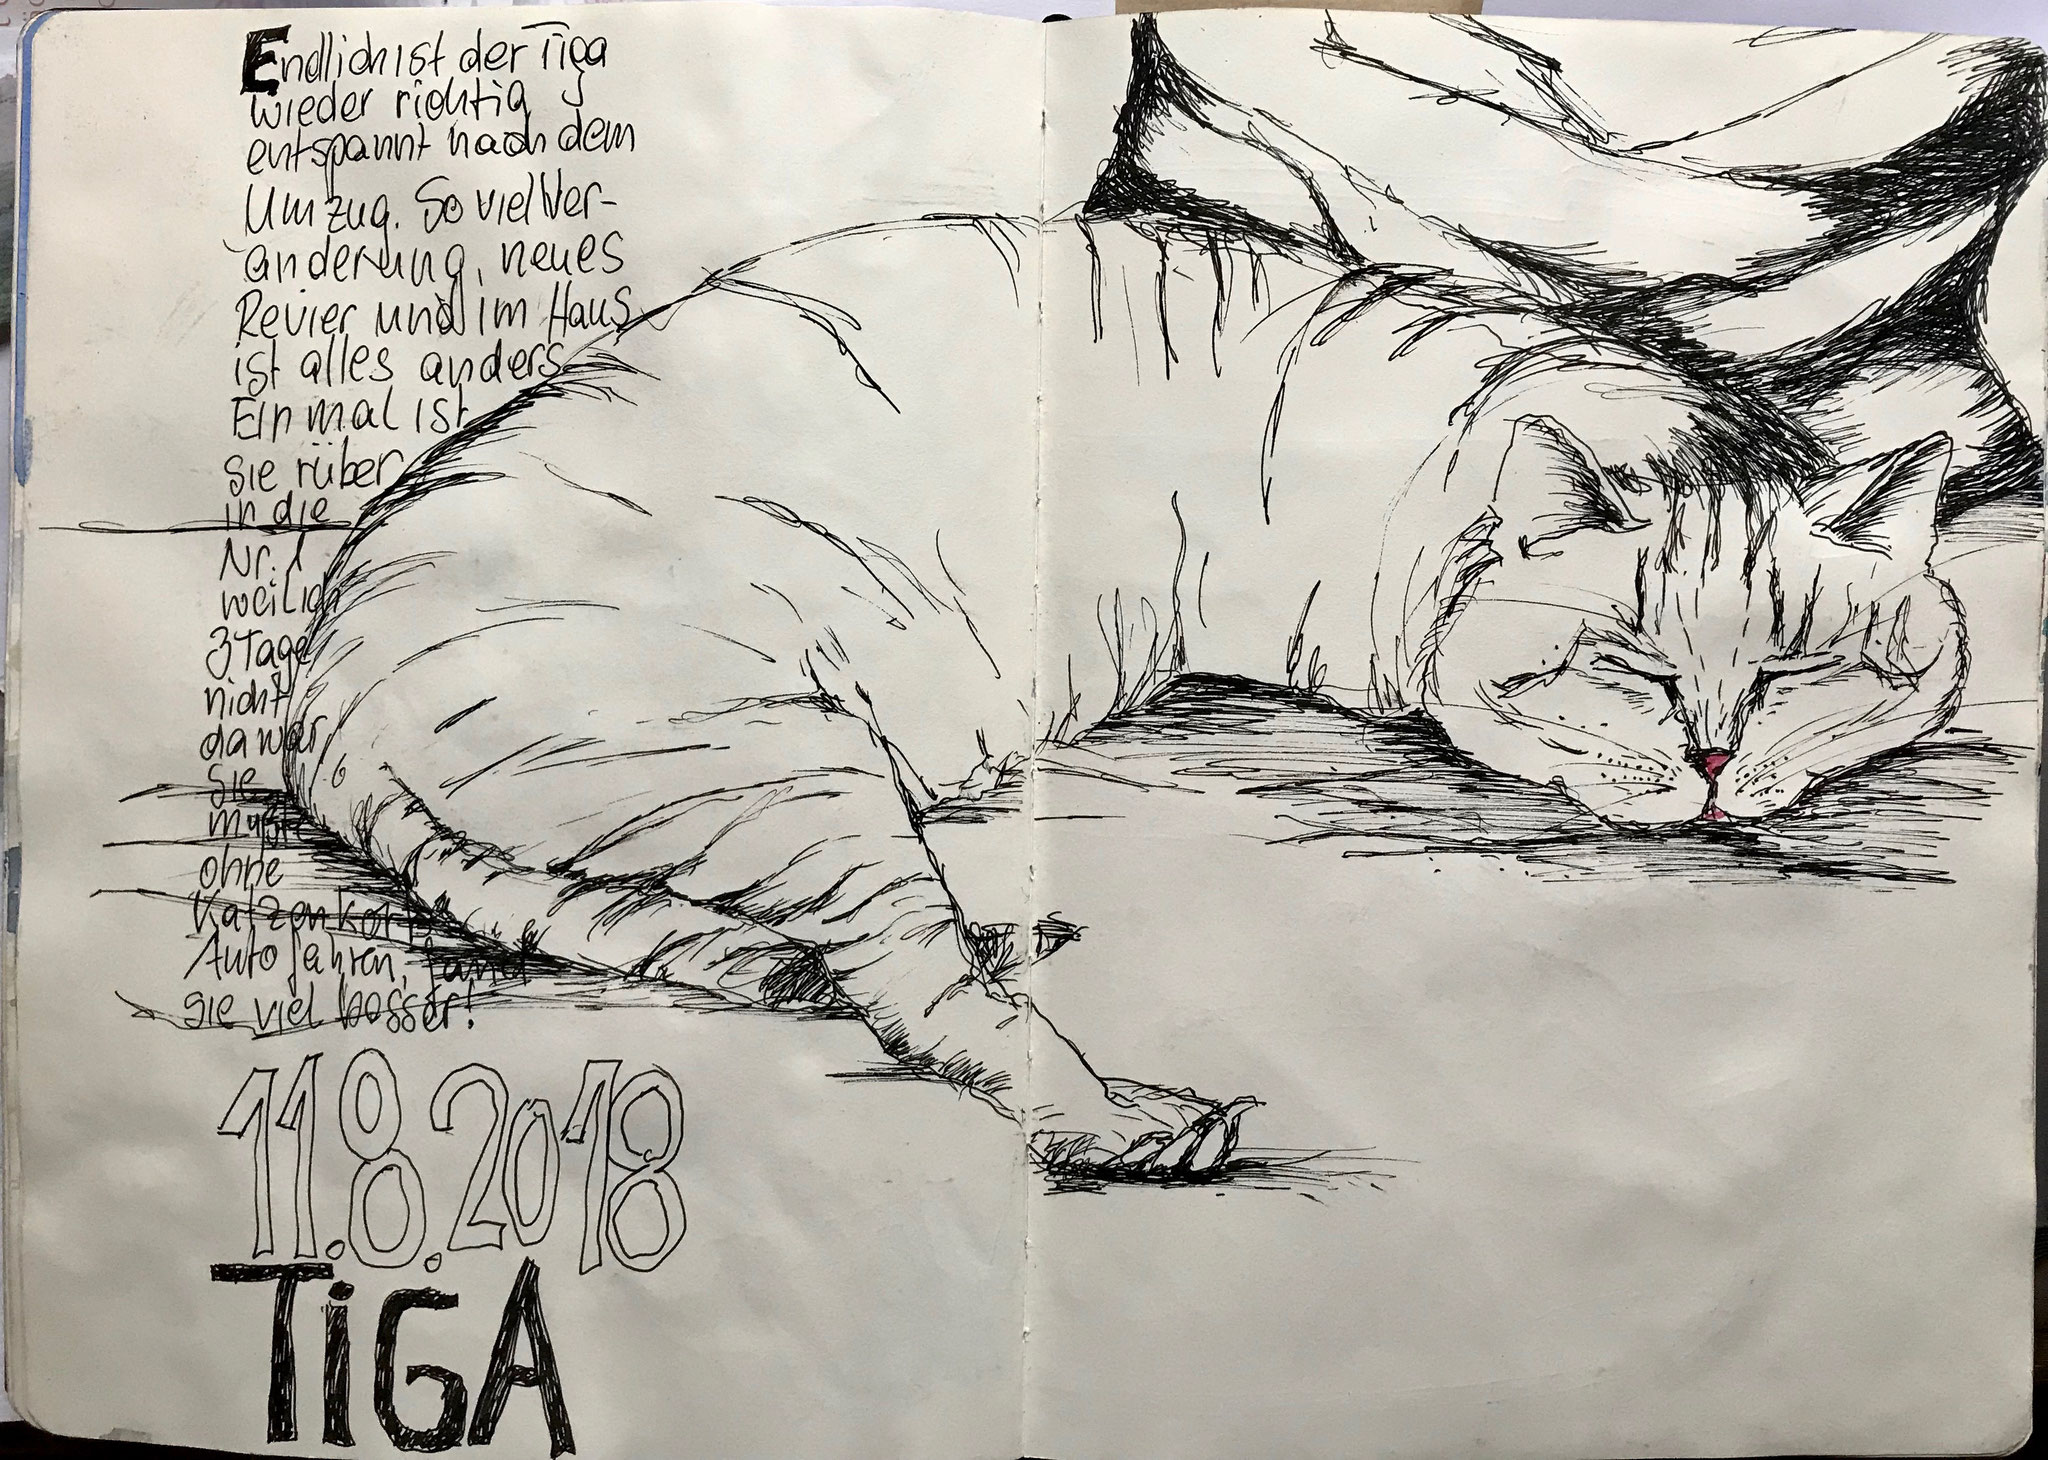 Endlich ist der Tiga
wieder richtig
entspannt nach dem
Umzug. So viel Ver-
änderung, neues
Revier und im Haus
ist alles anders
Einmal ist
sie rüber
in die
Nr. 1
weil ich
3 Tage
nicht
da war
sie
mußte
ohne
Katzenkorb
Auto fahren, fand
sie viel besser!
11.8.2018
TiGA